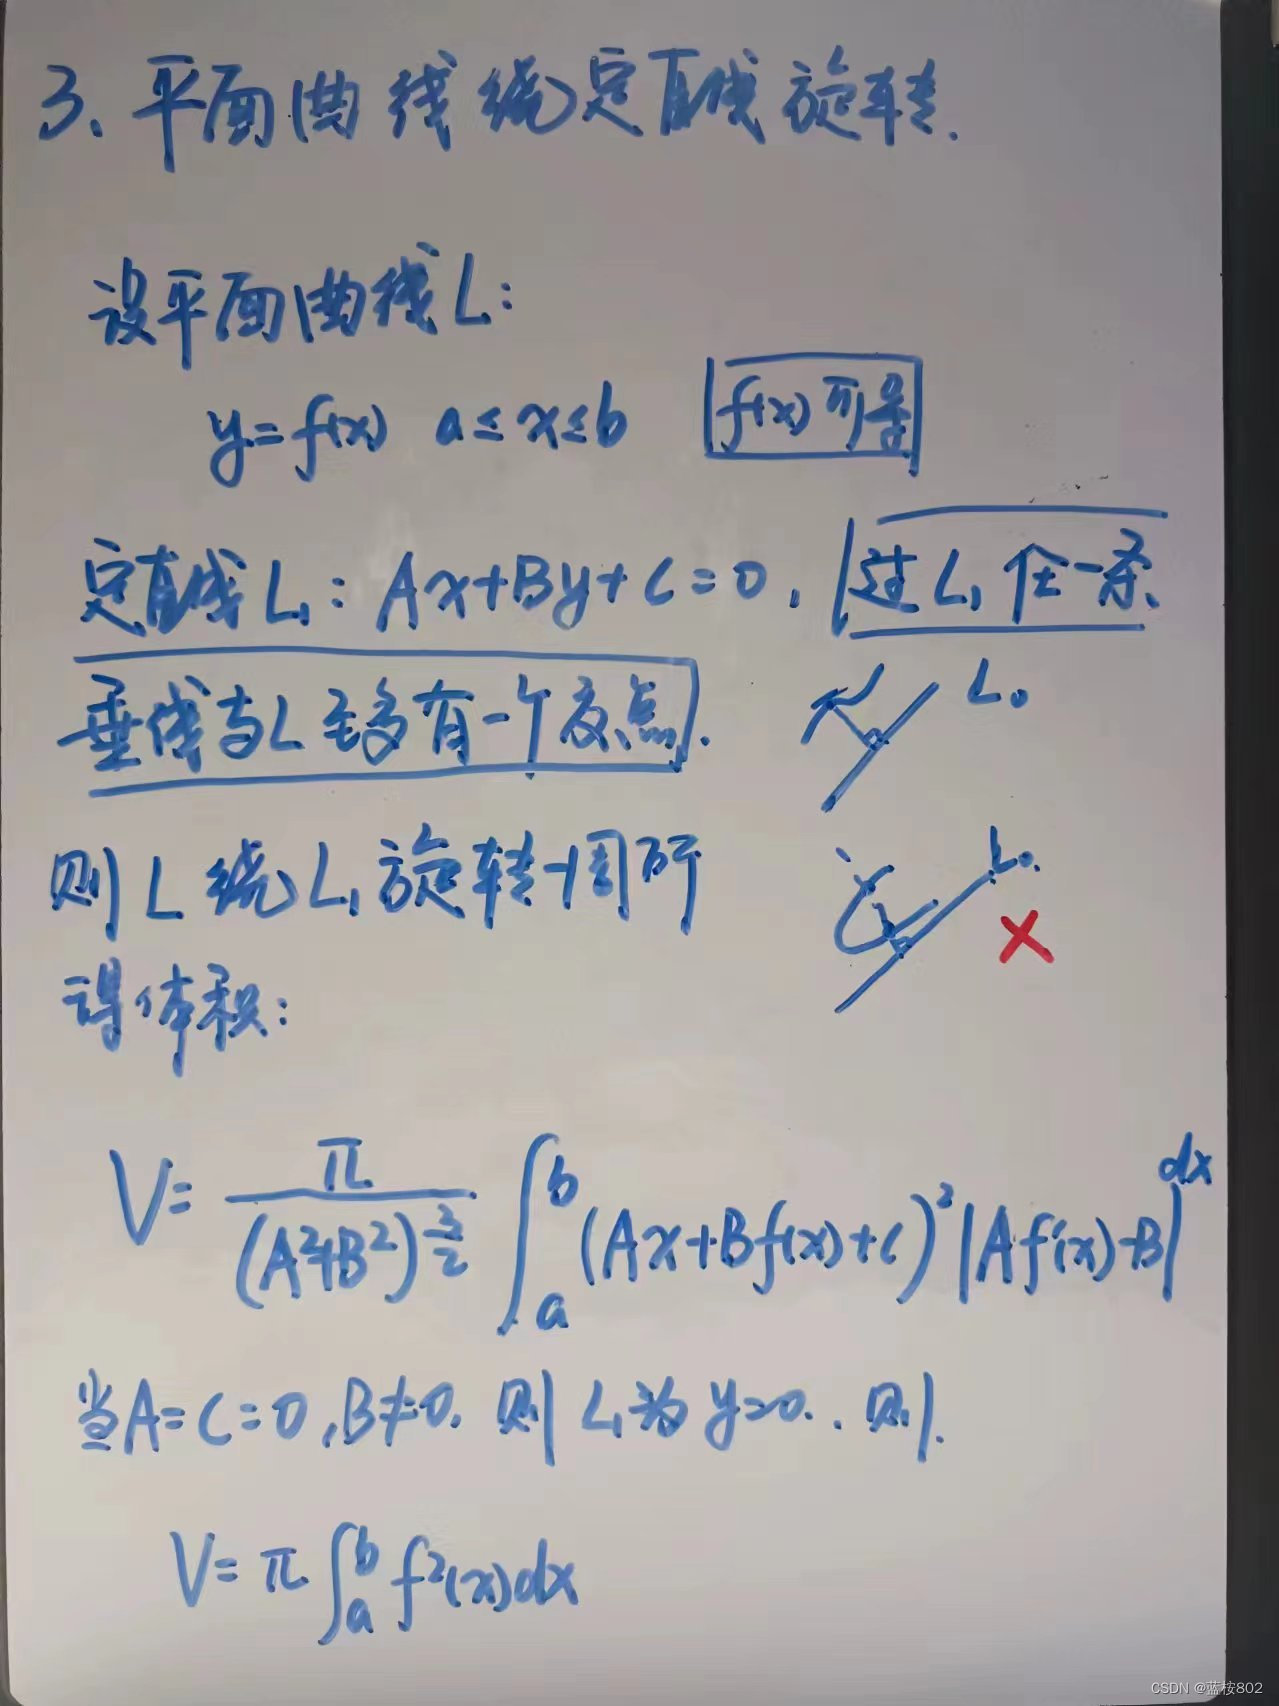 3、平面曲线绕定直线旋转.
设平面曲线L:
y=f(x) a≤x≤b f(x)可导
定直线L₁: Ax+By+C=0, 过L₁任一条
垂线与L至多有一个交点.
L₀
则L绕L₁旋转一周所
L₀.
得体积:
V= π/(A²+B²)^(3/2) ∫_a^b (Ax+Bf(x)+C)²|Af'(x)-B|dx
当A=C=0,B≠0. 则L₁为y=0.. 则.
V=π∫_a^b f²(x)dx
CSDN @蓝桉802